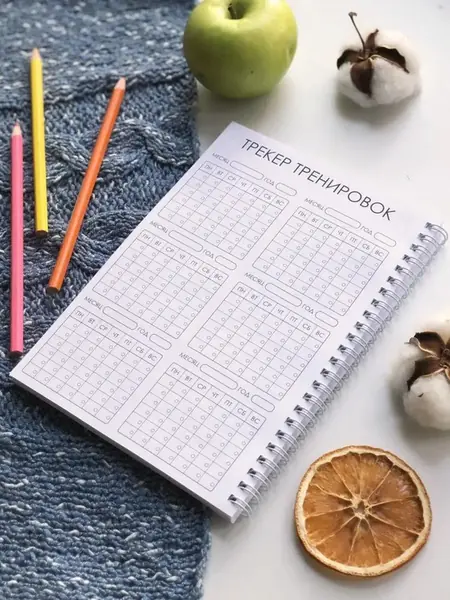 ТРЕКЕР ТРЕНИРОВОК
МЕСЯЦ ГОД
ПН ВТ СР ЧТ ПТ СБ ВС
МЕСЯЦ ГОД
ПН ВТ СР ЧТ ПТ СБ ВС
МЕСЯЦ ГОД
ПН ВТ СР ЧТ ПТ СБ ВС
МЕСЯЦ ГОД
ПН ВТ СР ЧТ ПТ СБ ВС
МЕСЯЦ ГОД
ПН ВТ СР ЧТ ПТ СБ ВС
МЕСЯЦ ГОД
ПН ВТ СР ЧТ ПТ СБ ВС